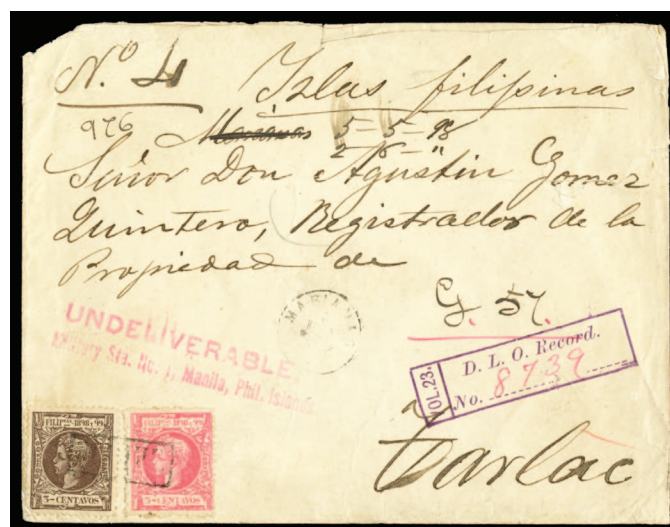 N.º 4 Islas filipinas
976
Marianas 5-5-98
2-6-"
Señor Don Agustin Gomez
Quintero, Registrador de la
Propiedad de
G. 57.
UNDELIVERABLE.
Military Sta. No. 1, Manila, Phil. Islands.
VOL.23.
D. L. O. Record.
No. 8739
Tarlac
FILIPnas 1898 y 99
3-CENTAVOS
FILIPnas 1898 y 99
5-CENTAVOS